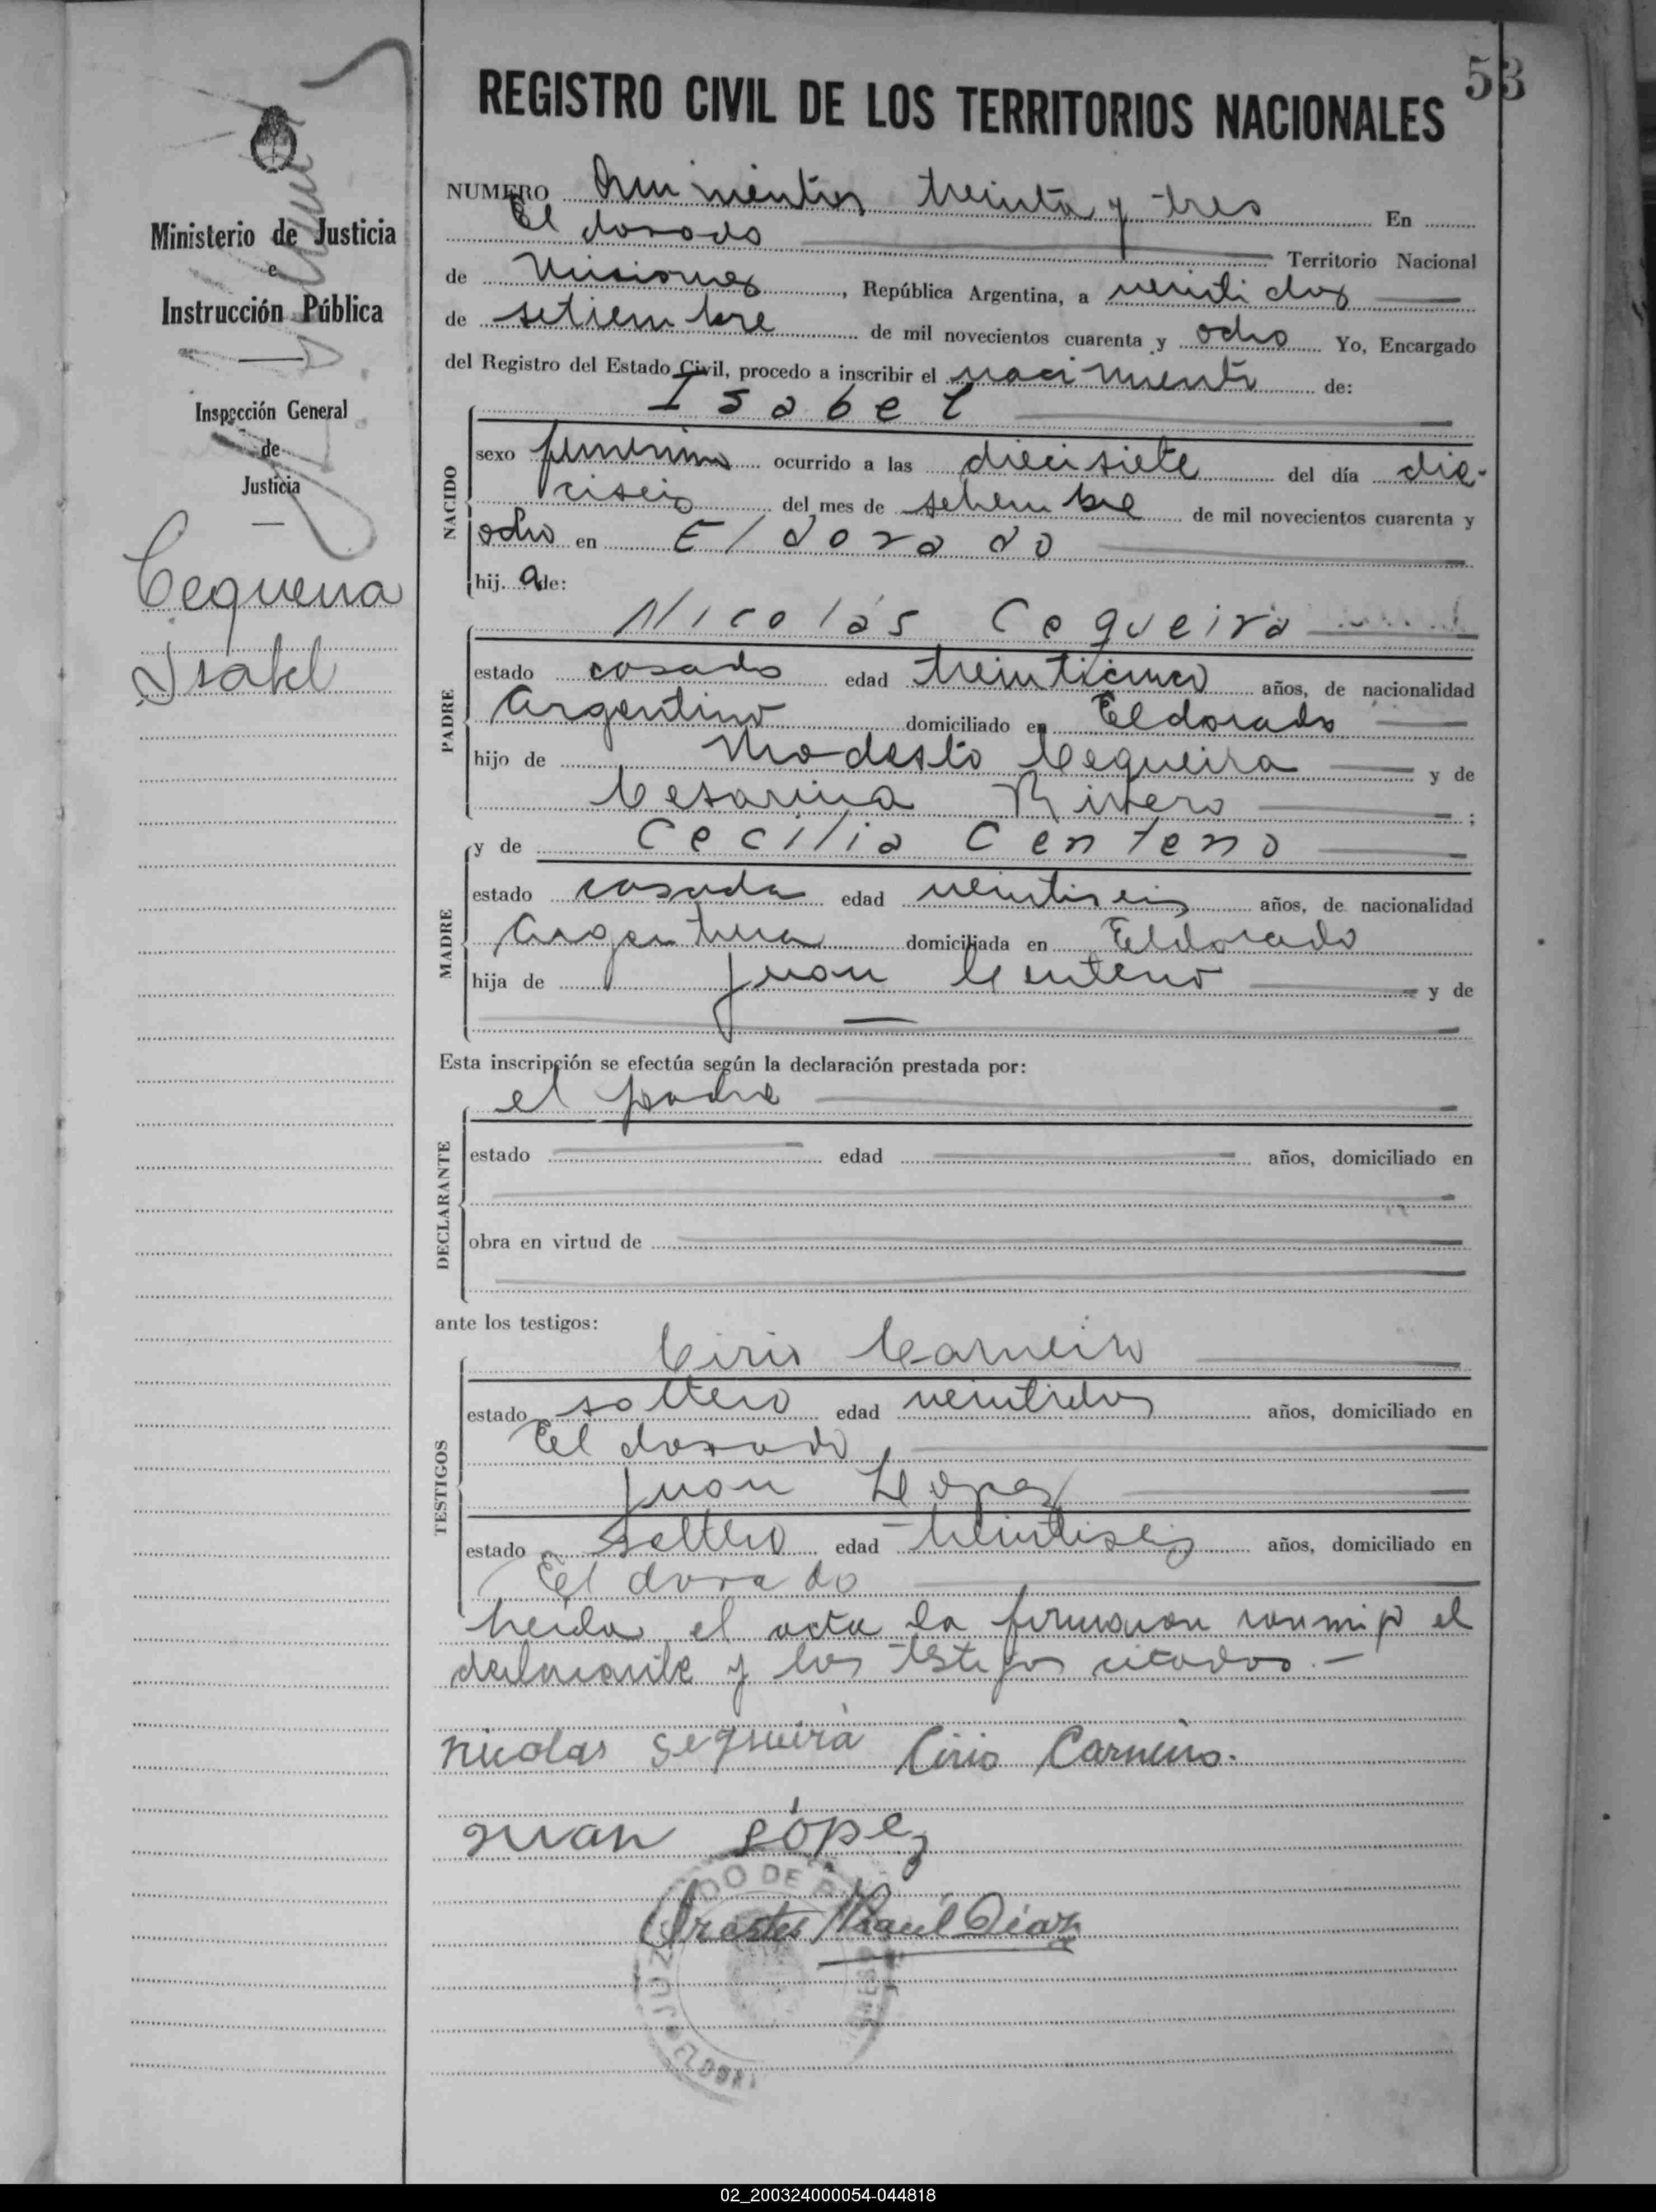 53
REGISTRO CIVIL DE LOS TERRITORIOS NACIONALES
Ministerio de Justicia
e
Instrucción Pública
Inspección General
de
Justicia
Cequeira
Isabel
NUMERO Quinientos treinta y tres En
Eldorado Territorio Nacional
de Misiones, República Argentina, a veintidos
de setiembre de mil novecientos cuarenta y ocho Yo, Encargado
del Registro del Estado Civil, procedo a inscribir el nacimiento de:
Isabel
NACIDO
sexo femenino ocurrido a las diecisiete del día die-
ciseis del mes de setiembre de mil novecientos cuarenta y
ocho en Eldorado
hij a de:
Nicolás Cequeira
PADRE
estado casado edad treinticinco años, de nacionalidad
Argentino domiciliado en Eldorado
hijo de Modesto Cequeira y de
Cesarina Rivero ;
y de Cecilia Centeno
MADRE
estado casada edad veintiseis años, de nacionalidad
Argentina domiciliada en Eldorado
hija de Juan Centeno y de
Esta inscripción se efectúa según la declaración prestada por:
el padre
DECLARANTE
estado edad años, domiciliado en
obra en virtud de
ante los testigos:
Cirio Carneiro
TESTIGOS
estado soltero edad veintidos años, domiciliado en
Eldorado
Juan Lopez
estado soltero edad treintiseis años, domiciliado en
Eldorado
Leída el acta la firmaron conmigo el
declarante y los testigos citados.-
nicolas sequeira Cirio Carneiro.
Juan López
Orestes Raúl Díaz
JUZGADO DE PAZ
02_200324000054-044818